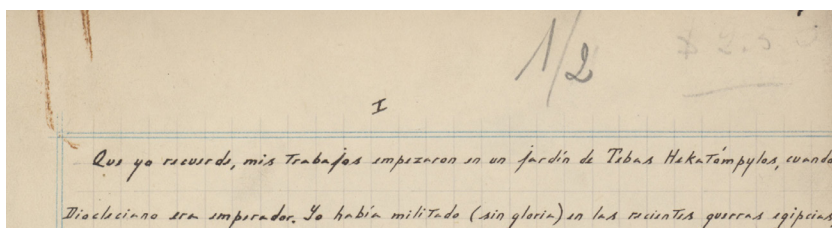 1/2
I
Que yo recuerde, mis trabajos empezaron en un jardín de Tebas Hekatómpylos, cuando
Diocleciano era emperador. Yo había militado (sin gloria) en las recientes guerras egipcias